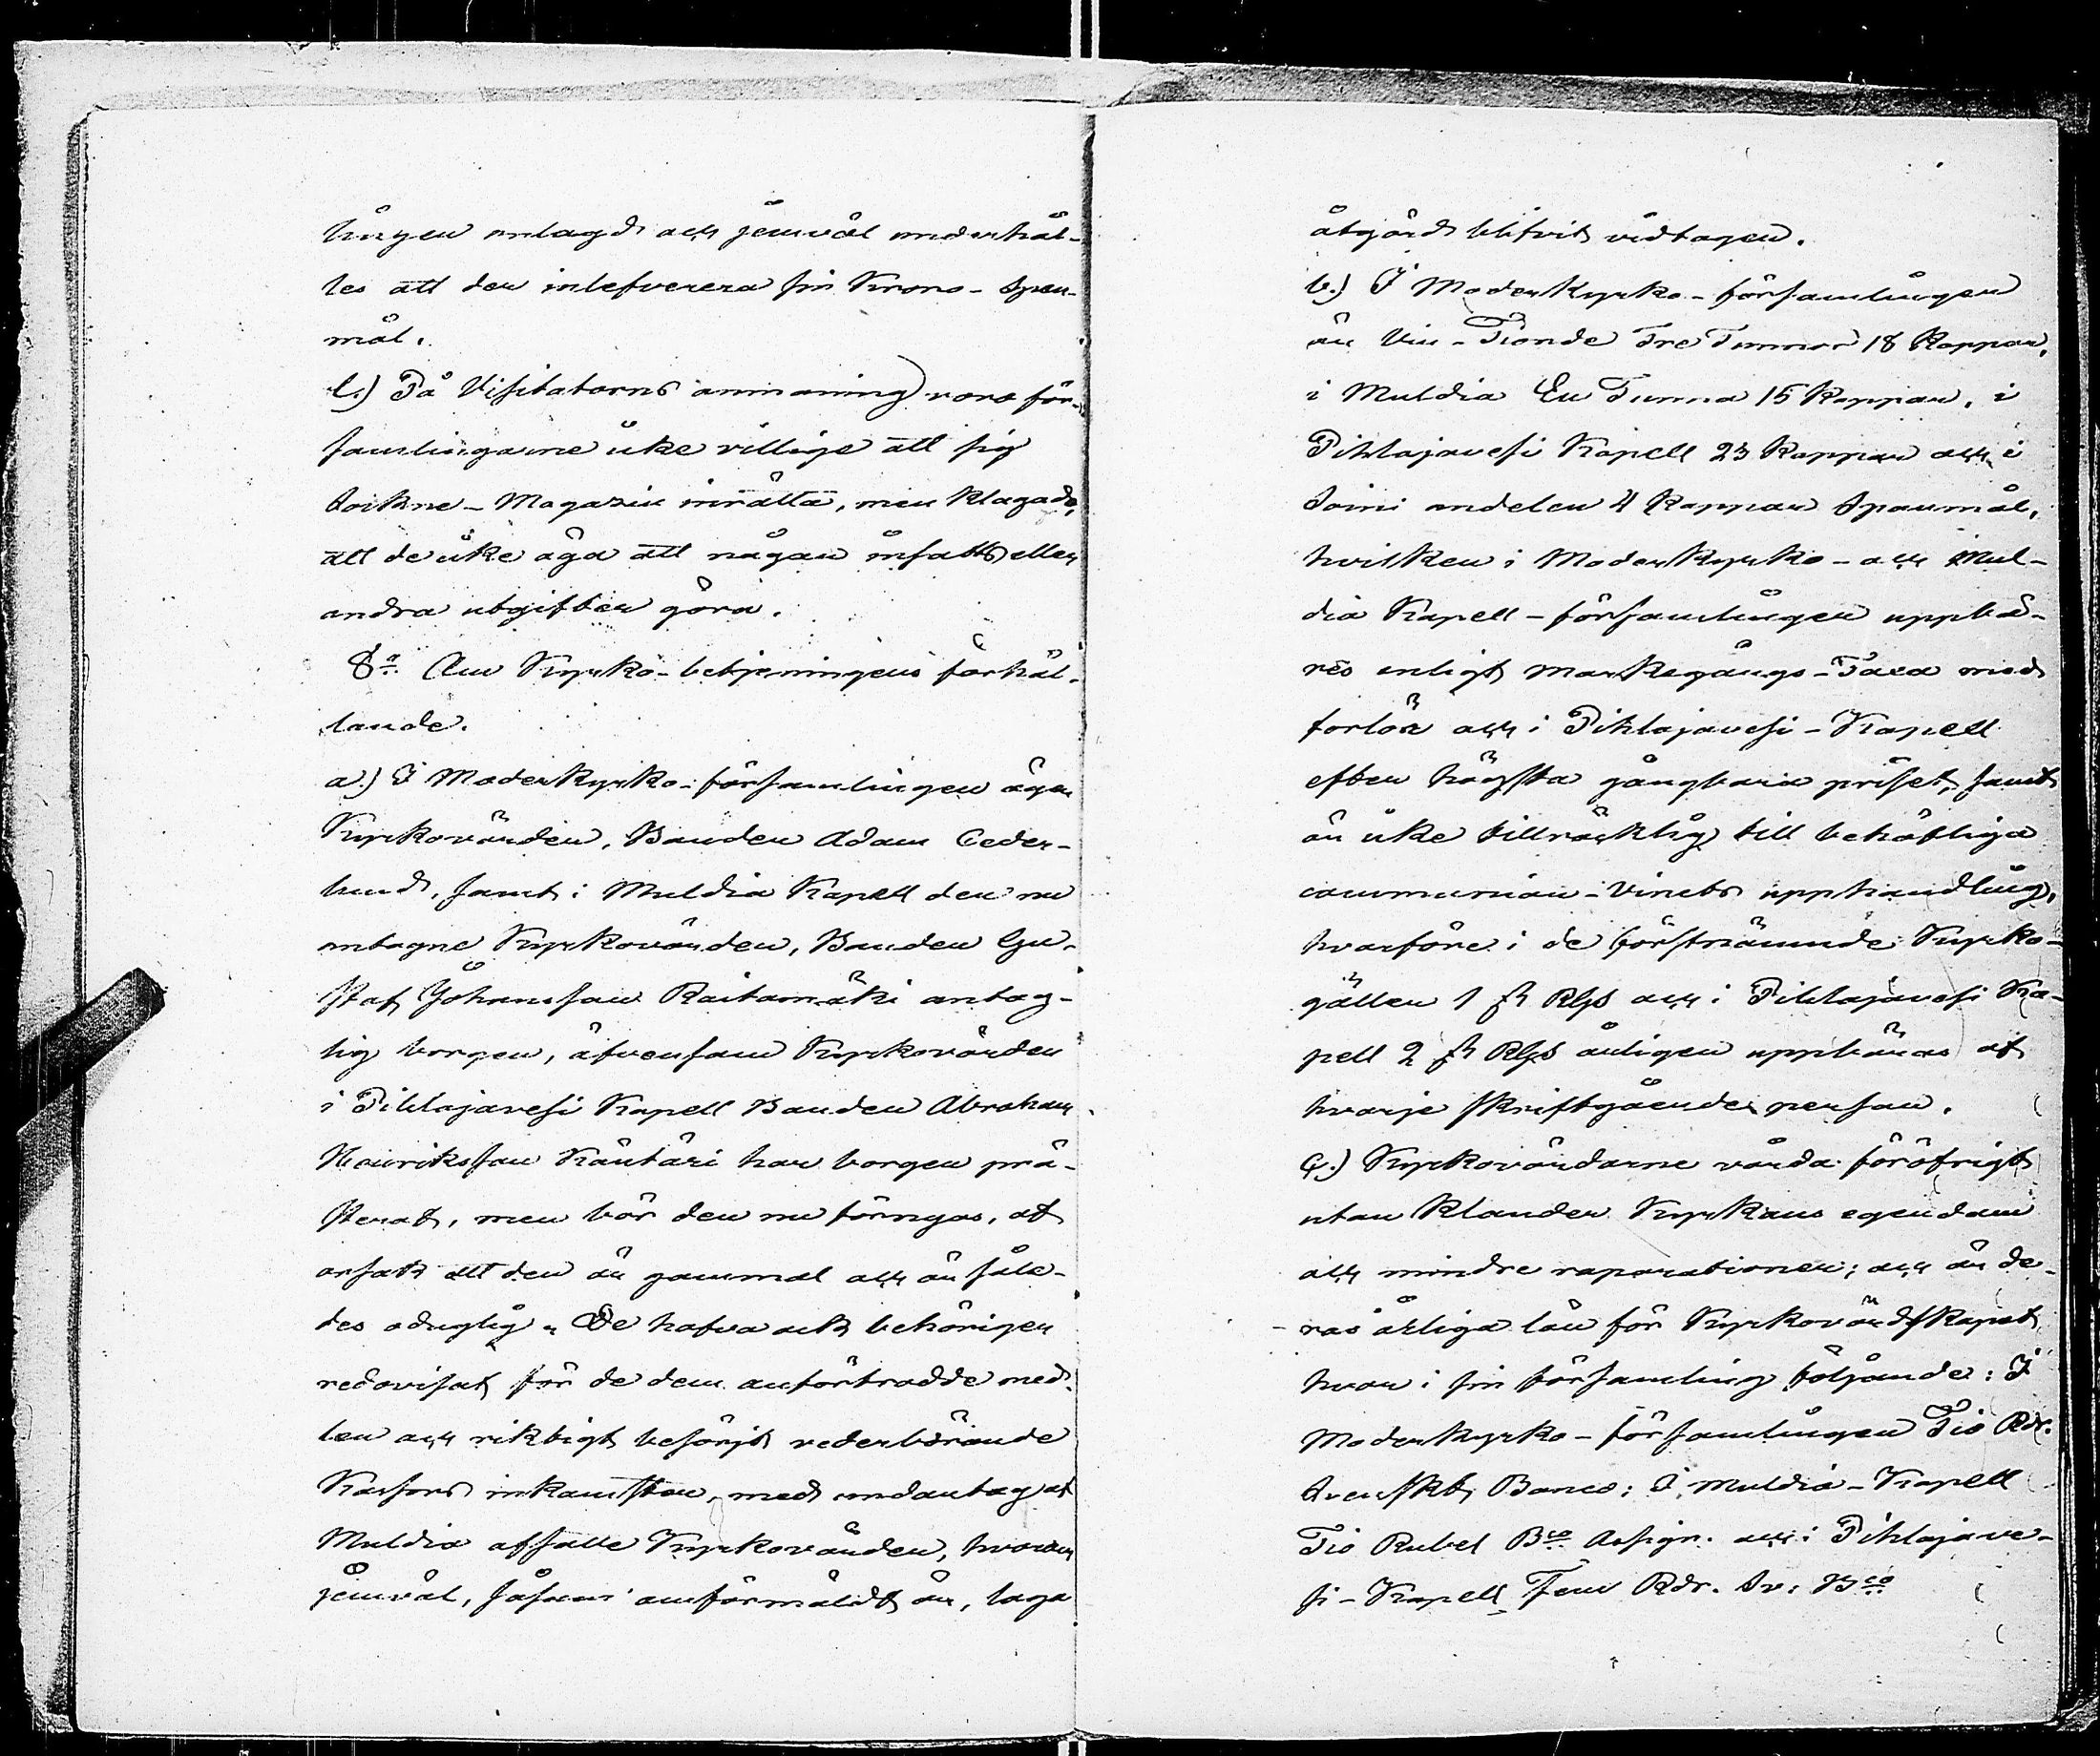 lingen anlagd och jemväl underhål-
les att der inlefverera sin Krono-Span-
mål.
l.) På Visitatorns anmaning voro för-
samlingarne icke villige att sig
Sockne-Magazin inrätta, men klagade,
att de icke äga att någan insatts eller
andra utgifter göra.
8:o Om Kyrko-betjeningens förhål-
lande.
a.) I Moderkyrko-församlingen äger
Kyrkovärden, Bonden Adam Ceder-
lund, samt i Muldia Kapell den nu
antagne Kyrkovärden, Bonden Gu-
staf Johansson Raitamäki antag-
lig borgen, äfvensom Kyrkovärden
i Pihlajavesi Kapell Bonden Abraham
Henriksson Käntäri har borgen prä-
sterat, men bör den nu förnyas, af
orsak att den är gammal och är såle-
des oduglig. De hafva ock behörigen
redovisat för de dem anförtrodde med-
len och riktigt besörjt vederbörande
Kassors inkomster, med undantag af
Muldia aflatte Kyrkovärden, hvarom
jemväl, såsom anförmäldt är, laga
åtgärd blifvit vidtagen.
b.) I Moderkyrko-församlingen
är Vin-Tionde Tre Tunnor 18 Kappar,
i Muldia En Tunna 15 Kappar, i
Pihlajavesi Kapell 23 Kappar och i
Soini andelen 4 Kappar Spanmål,
hvilken i Moderkyrko- och Mul-
dia Kapell-församlingen uppbä-
res enligt Markegångs-Taxa med
forlön och i Pihlajavesi-Kapell
efter högsta gångbara priset, samt
är icke tillräcklig till behöfliga
communion-Vinets upphandling,
hvarföre i de förstnämnde Kyrko-
gällen 1 s. Rgs och i Pihlajavesi Ka-
pell 2 s. Rgs årligen uppbäras af
hvarje skriftgående person.
c.) Kyrkovärdarne vårda föröfrigt
utan klander Kyrkans egendom
och mindre reparationer; och är de-
ras årliga lön för Kyrkovärdskapet
hvar i sin församling följande: I
Moderkyrko-församlingen Tio Rdr.
Svenskt Banco; I Muldia-Kapell
Tio Rubel Bco Assign. och i Pihlajave-
si-Kapell Fem Rdr. Sv: Bco